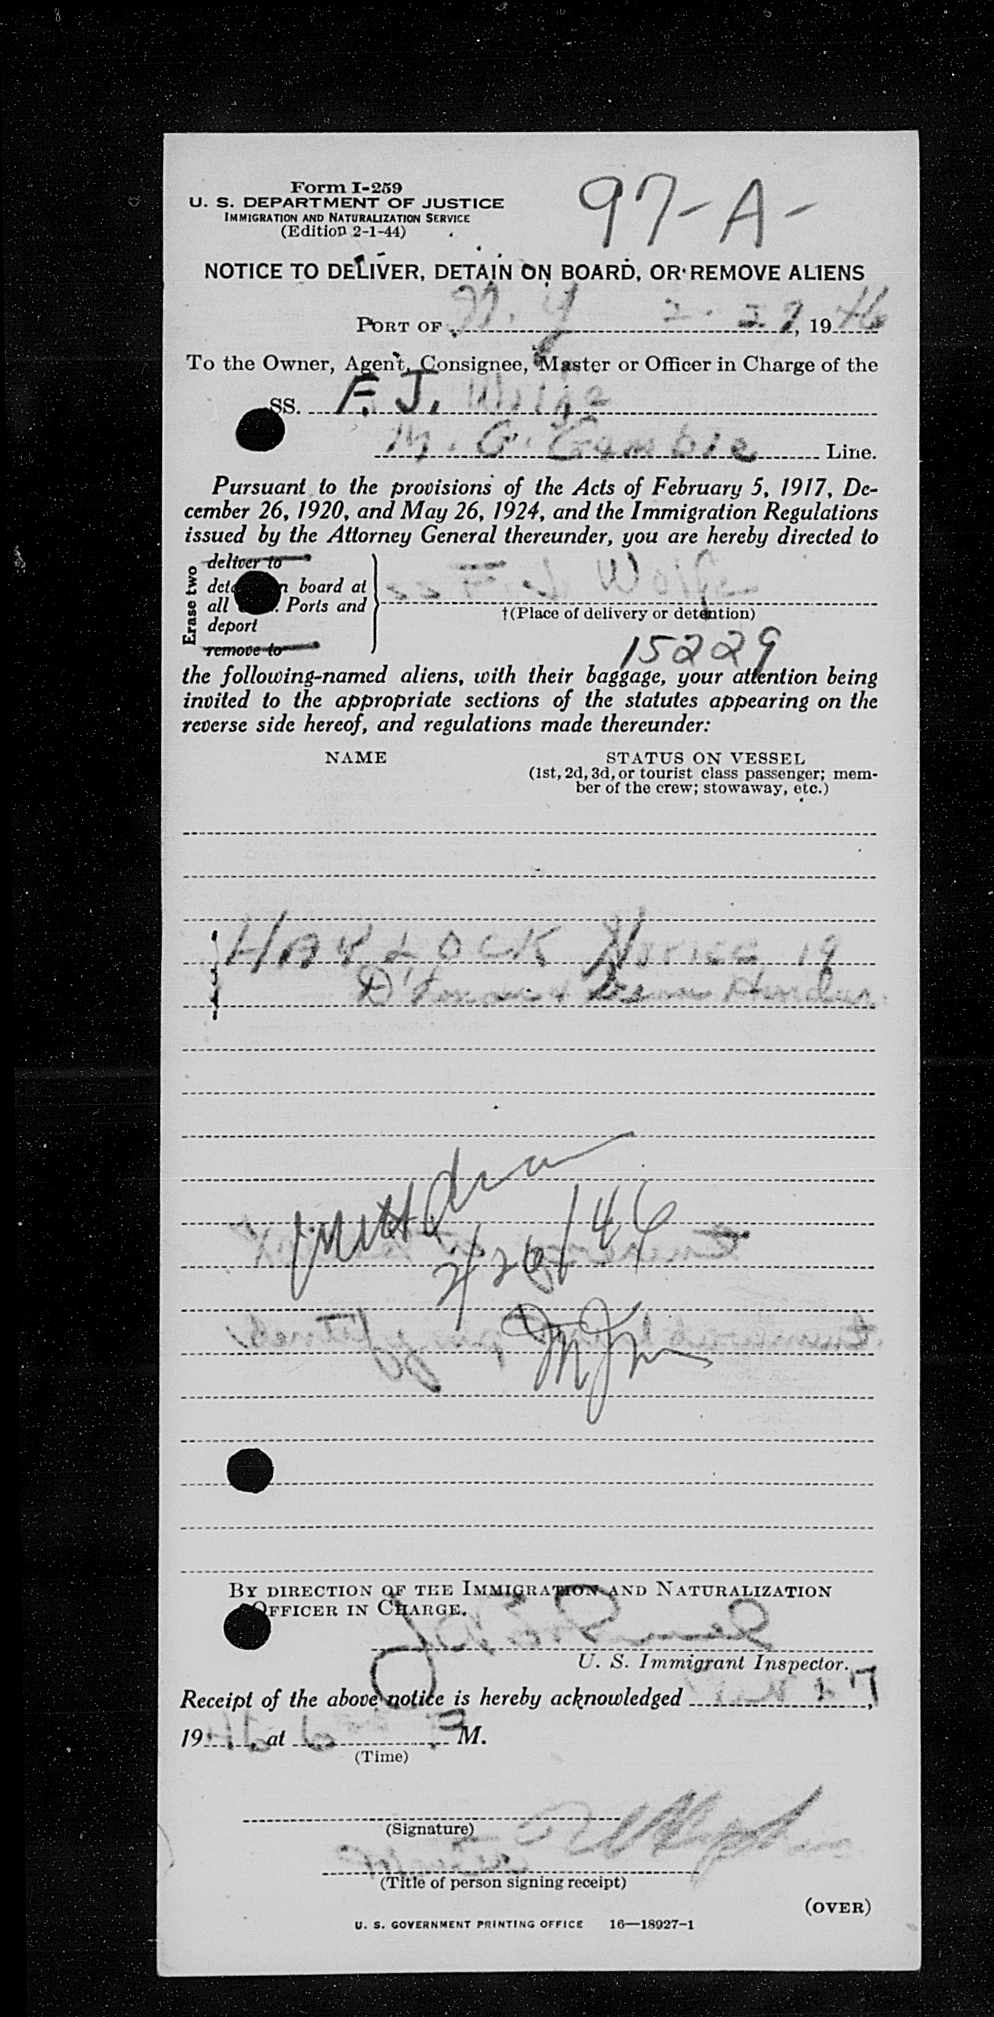 Form I-259
97-A-
U. S. DEPARTMENT OF JUSTICE
IMMIGRATION AND NATURALIZATION SERVICE
(Edition 2-1-44)
NOTICE TO DELIVER, DETAIN ON BOARD, OR REMOVE ALIENS
PORT OF N. Y 2-27, 1946
To the Owner, Agent, Consignee, Master or Officer in Charge of the
SS. F. J. Wolfe
M. G. Gamble Line.
Pursuant to the provisions of the Acts of February 5, 1917, De-
cember 26, 1920, and May 26, 1924, and the Immigration Regulations
issued by the Attorney General thereunder, you are hereby directed to
Erase two
deliver to
board at
all Ports and
deport
remove to
Wolfe
†(Place of delivery or detention)
15229
the following-named aliens, with their baggage, your attention being
invited to the appropriate sections of the statutes appearing on the
reverse side hereof, and regulations made thereunder:
NAME
STATUS ON VESSEL
(1st, 2d, 3d, or tourist class passenger; mem-
ber of the crew; stowaway, etc.)
19
2/26/46
BY DIRECTION OF THE IMMIGRATION AND NATURALIZATION
OFFICER IN CHARGE.
U. S. Immigrant Inspector.
Receipt of the above notice is hereby acknowledged
19 at M.
(Time)
(Signature)
(Title of person signing receipt)
(OVER)
U. S. GOVERNMENT PRINTING OFFICE 16—18927-1